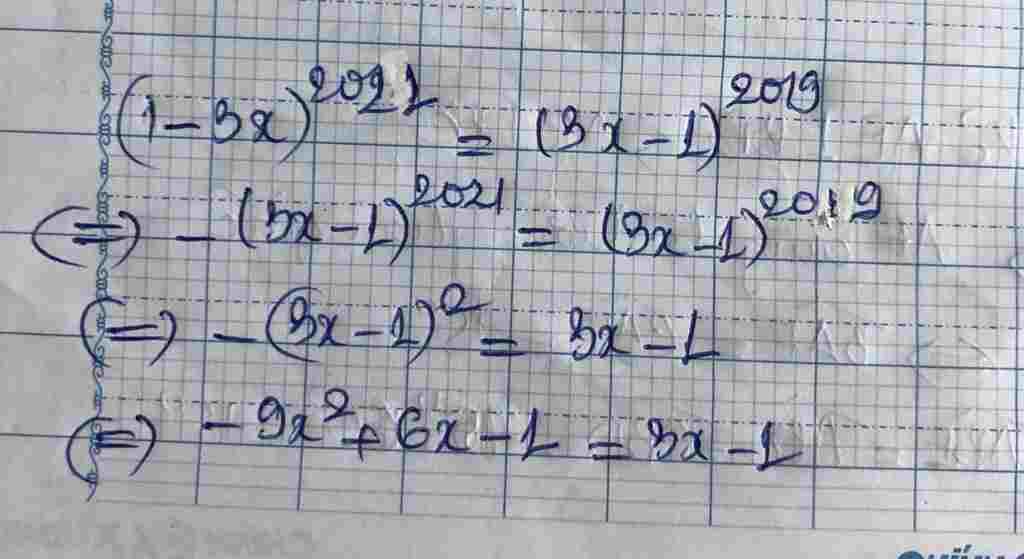 (1 - 3x)^2021 = (3x - 1)^2019
(=) - (3x - 1)^2021 = (3x - 1)^2019
(=) - (3x - 1)^2 = 3x - 1
(=) - 9x^2 + 6x - 1 = 3x - 1